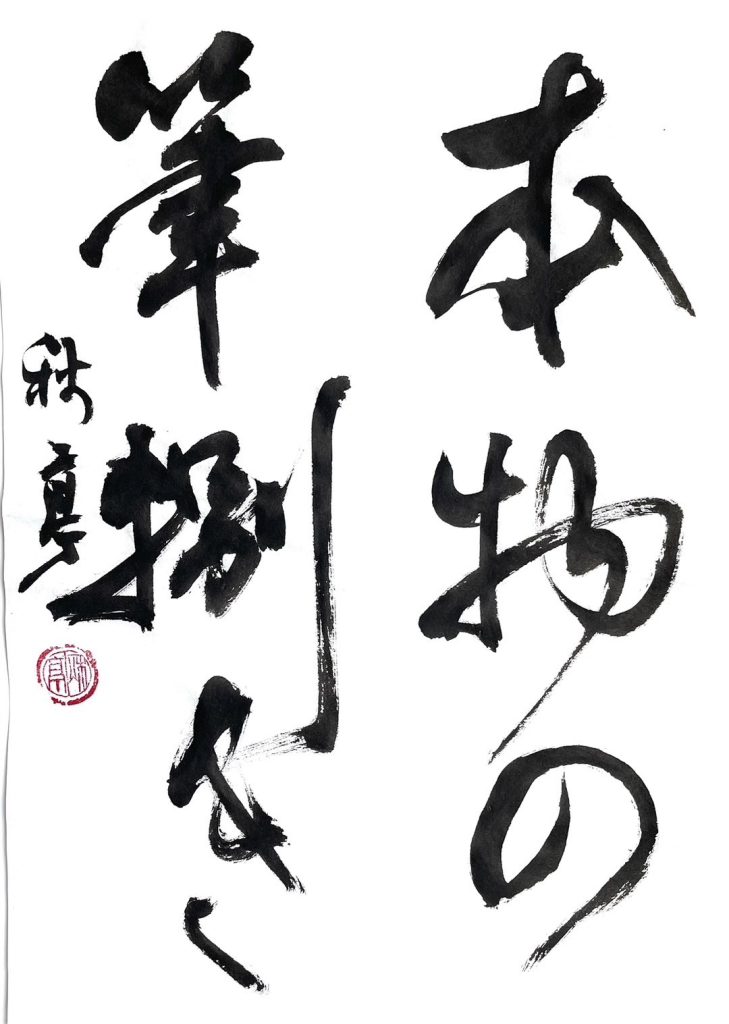 本物の
筆捌き
秋亭